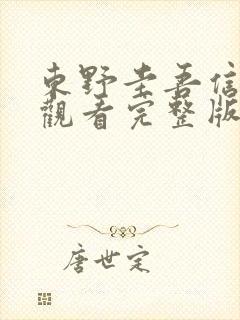 東野圭吾信
觀看完整版
唐世定